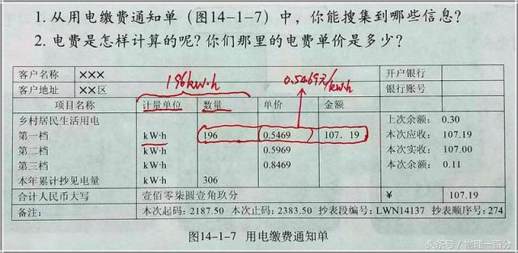 1. 从用电缴费通知单（图14-1-7）中，你能搜集到哪些信息？
2. 电费是怎样计算的呢？你们那里的电费单价是多少？
196kW·h 0.5469元/kW·h
客户名称 ××× 开户银行
客户地址 ××区 银行账号
项目名称 计量单位 数量 单价 金额
乡村居民生活用电 上次余额： 0.30
第一档 kW·h 196 0.5469 107. 19 本次应收： 107.19
第二档 kW·h 0.5969 本次实收： 107.00
第三档 kW·h 0.8469 本次余额： 0.11
本年累计抄见电量 306
合计人民币大写 壹佰零柒圆壹角玖分 ¥ 107.19
备注： 本次起码：2187.50 本次止码：2383.50 抄表段编号：LWN14137 抄表顺序号：274
图14-1-7 用电缴费通知单